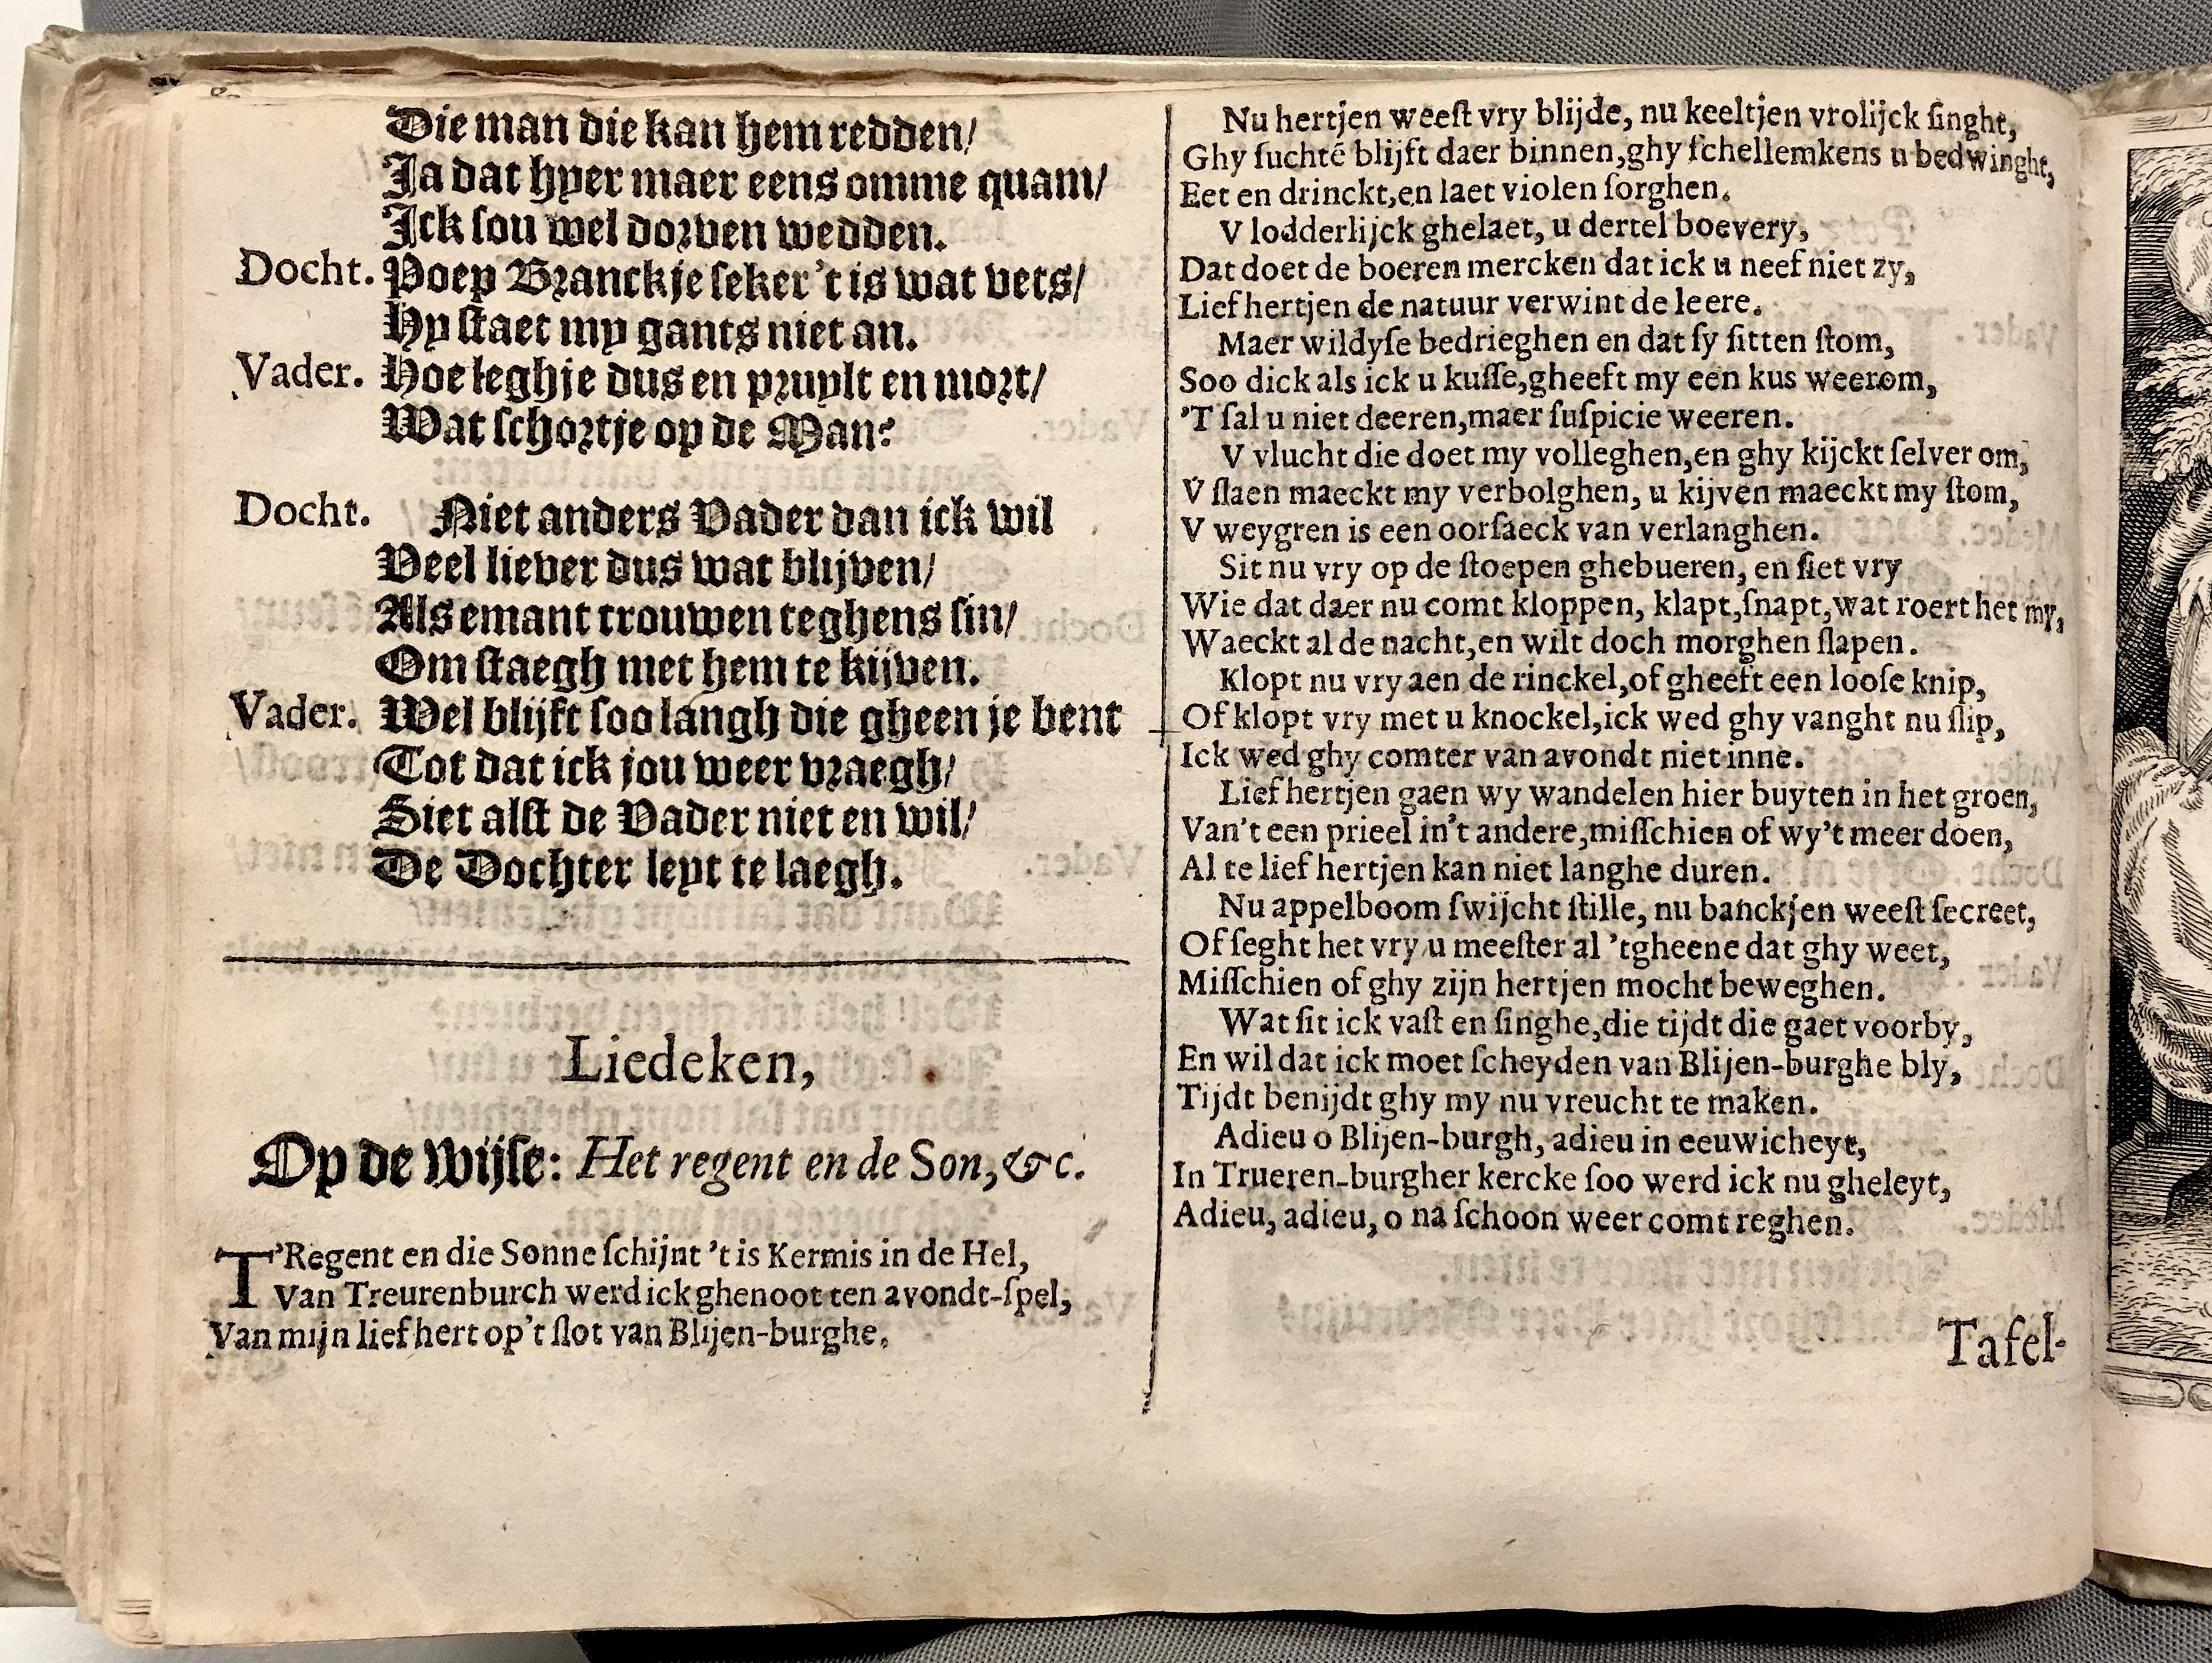 Die man die kan hem redden/
Ja dat hyer maer eens omme quam/
Ick sou wel dorven wedden.
Docht. Poep Branckje seker 't is wat vets/
Hy staet my gants niet an.
Vader. Hoe leghje dus en pruylt en mort/
Wat schortje op de Man?
Docht. Niet anders Vader dan ick wil
Veel liever dus wat blijven/
Als emant trouwen teghens sin/
Om staegh met hem te kijven.
Vader. Wel blijft soo langh die gheen je bent
Tot dat ick jou weer vraegh/
Siet alst de Vader niet en wil/
De Dochter leyt te laegh.
Liedeken,
Op de wijse: Het regent en de Son, &c.
T'Regent en die Sonne schijnt 't is Kermis in de Hel,
Van Treurenburch werd ick ghenoot ten avondt-spel,
Van mijn lief hert op't slot van Blijen-burghe.
Nu hertjen weest vry blijde, nu keeltjen vrolijck singht,
Ghy suchtē blijft daer binnen, ghy schellemkens u bedwinght,
Eet en drinckt, en laet violen sorghen.
V lodderlijck ghelaet, u dertel boevery,
Dat doet de boeren mercken dat ick u neef niet zy,
Lief hertjen de natuur verwint de leere.
Maer wildyse bedrieghen en dat sy sitten stom,
Soo dick als ick u kusse, gheeft my een kus weerom,
'T sal u niet deeren, maer suspicie weeren.
V vlucht die doet my volleghen, en ghy kijckt selver om,
V slaen maeckt my verbolghen, u kijven maeckt my stom,
V weygren is een oorsaeck van verlanghen.
Sit nu vry op de stoepen ghebueren, en siet vry
Wie dat daer nu comt kloppen, klapt, snapt, wat roert het my,
Waeckt al de nacht, en wilt doch morghen slapen.
Klopt nu vry aen de rinckel, of gheeft een loose knip,
Of klopt vry met u knockel, ick wed ghy vanght nu slip,
Ick wed ghy comter van avondt niet inne.
Lief hertjen gaen wy wandelen hier buyten in het groen,
Van't een prieel in't andere, misschien of wy't meer doen,
Al te lief hertjen kan niet langhe duren.
Nu appelboom swijcht stille, nu banckjen weest secreet,
Of seght het vry u meester al 'tgheene dat ghy weet,
Misschien of ghy zijn hertjen mocht beweghen.
Wat sit ick vast en singhe, die tijdt die gaet voorby,
En wil dat ick moet scheyden van Blijen-burghe bly,
Tijdt benijdt ghy my nu vreucht te maken.
Adieu o Blijen-burgh, adieu in eeuwicheyt,
In Trueren-burgher kercke soo werd ick nu gheleyt,
Adieu, adieu, o na schoon weer comt reghen.
Tafel-